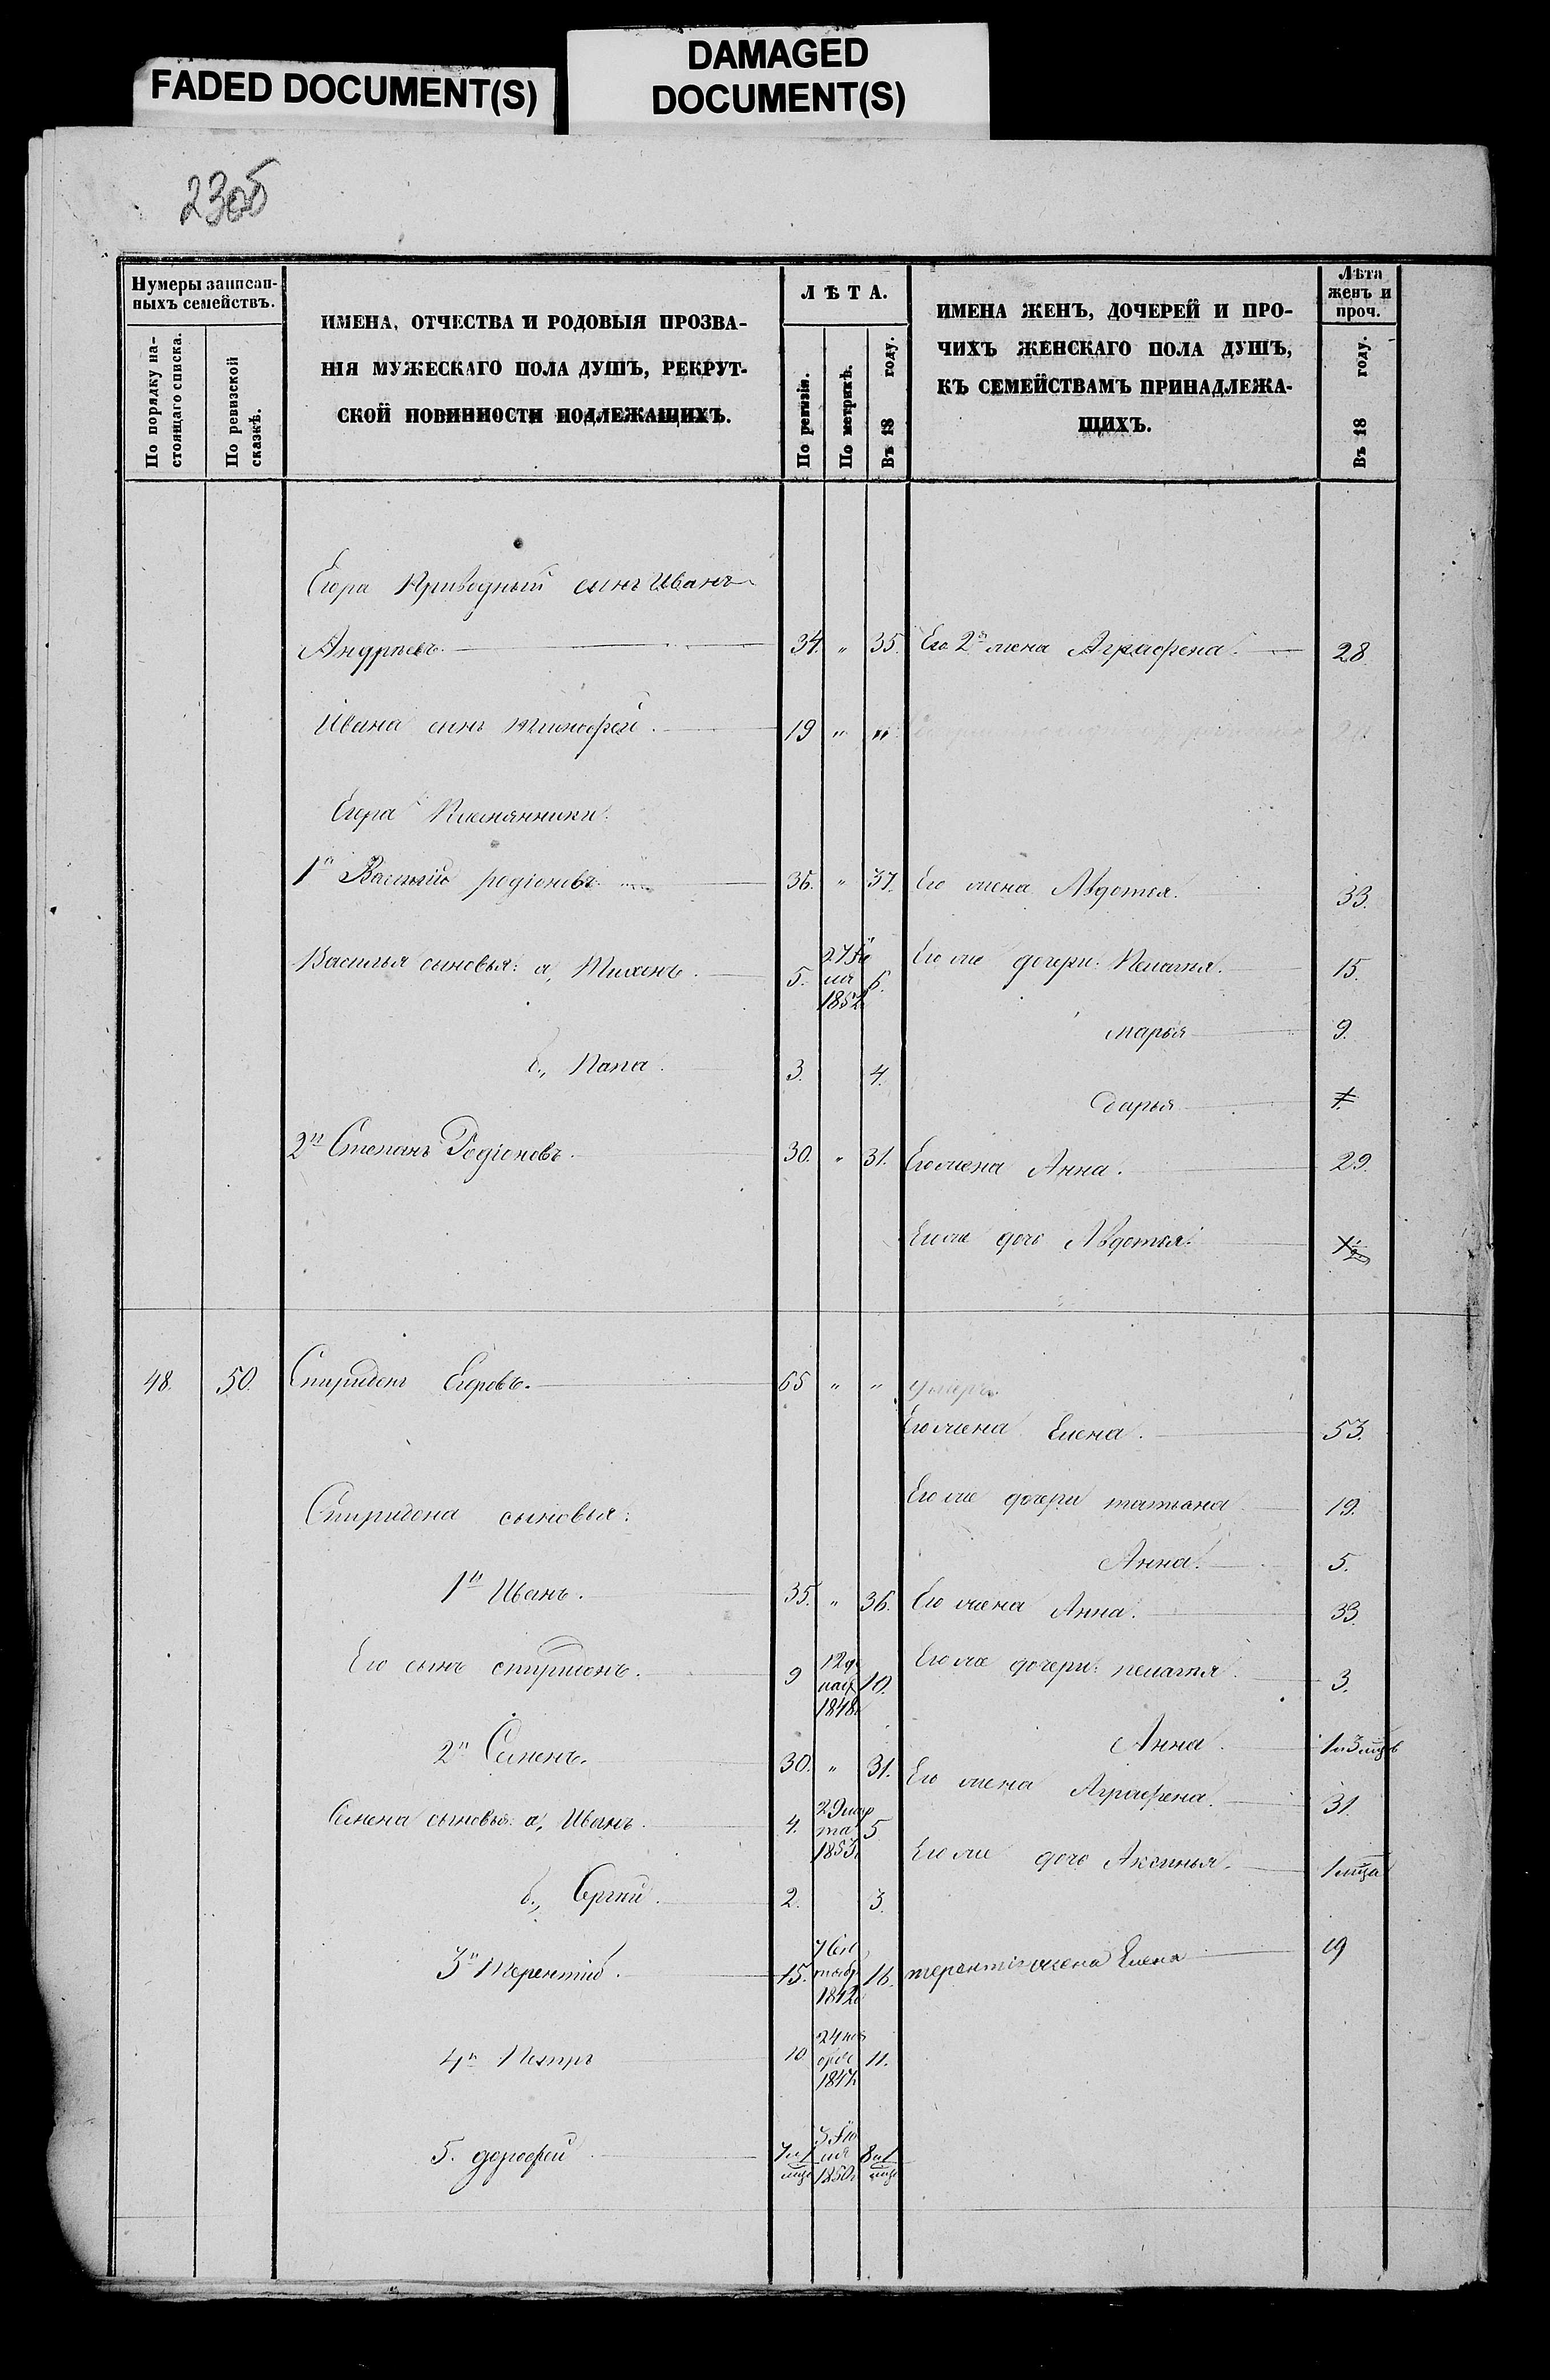 FADED DOCUMENT(S)
DAMAGED
DOCUMENT(S)
230б
Нумеры записан-
ныхъ семействъ.
По порядку на-
стоящаго списка.
По ревизской
сказкѣ.
ИМЕНА, ОТЧЕСТВА И РОДОВЫЯ ПРОЗВА-
НІЯ МУЖЕСКАГО ПОЛА ДУШЪ, РЕКРУТ-
СКОЙ ПОВИННОСТИ ПОДЛЕЖАЩИХЪ.
ЛѢТА.
По ревизіи.
По метрикѣ.
Въ 18 году.
ИМЕНА ЖЕНЪ, ДОЧЕРЕЙ И ПРО-
ЧИХЪ ЖЕНСКАГО ПОЛА ДУШЪ,
КЪ СЕМЕЙСТВАМЪ ПРИНАДЛЕЖА-
ЩИХЪ.
Лѣта
женъ и
проч.
Въ 18 году.
Егора Приводный сынъ Иванъ
Андреевъ. 34. " 35. Его 2я жена Аграфена. 28.
Ивана сынъ Тимофей. 19 " "
Егора Племянники:
1й Василій родіоновъ 36. " 37. Его жена Авдотья. 33.
Василья сыновья: а, Тихонъ. 5. 27 Iю ня 1852 6. Его же дочери: Пелагея. 15.
марья 9.
б., Капа. 3. 4.
дарья
2й Степанъ Родіоновъ. 30. " 31. Его жена Анна. 29.
Его же дочь Авдотья.
48. 50. Спиридонъ Егоровъ. 65 " " умеръ.
Его жена Елена. 53.
Спиридона сыновья: Его же дочери татьяна 19.
Анна. 5.
1й Иванъ. 35. " 36. Его жена Анна. 33.
Его сынъ спиридонъ. 9 12 де 1848 10. Его же дочери: пелагея. 3.
Анна. 1 и 3 мцв
2й Семенъ. 30. " 31. Его жена Аграфена. 31.
Семена сыновья: а, Иванъ. 4. 29 мар та 1853. 5 Его же дочь Аксинья. 1 мца
б., Сергѣй. 2. 3.
3й Терентій. 15. 7 Сен тябр 1842 16. терентія жена Елена 19
4й Петръ 10 24 1847. 11.
5. дорофей 7 и 1 мцъ 3 Iю ня 1850. 8 и 1 мцъ